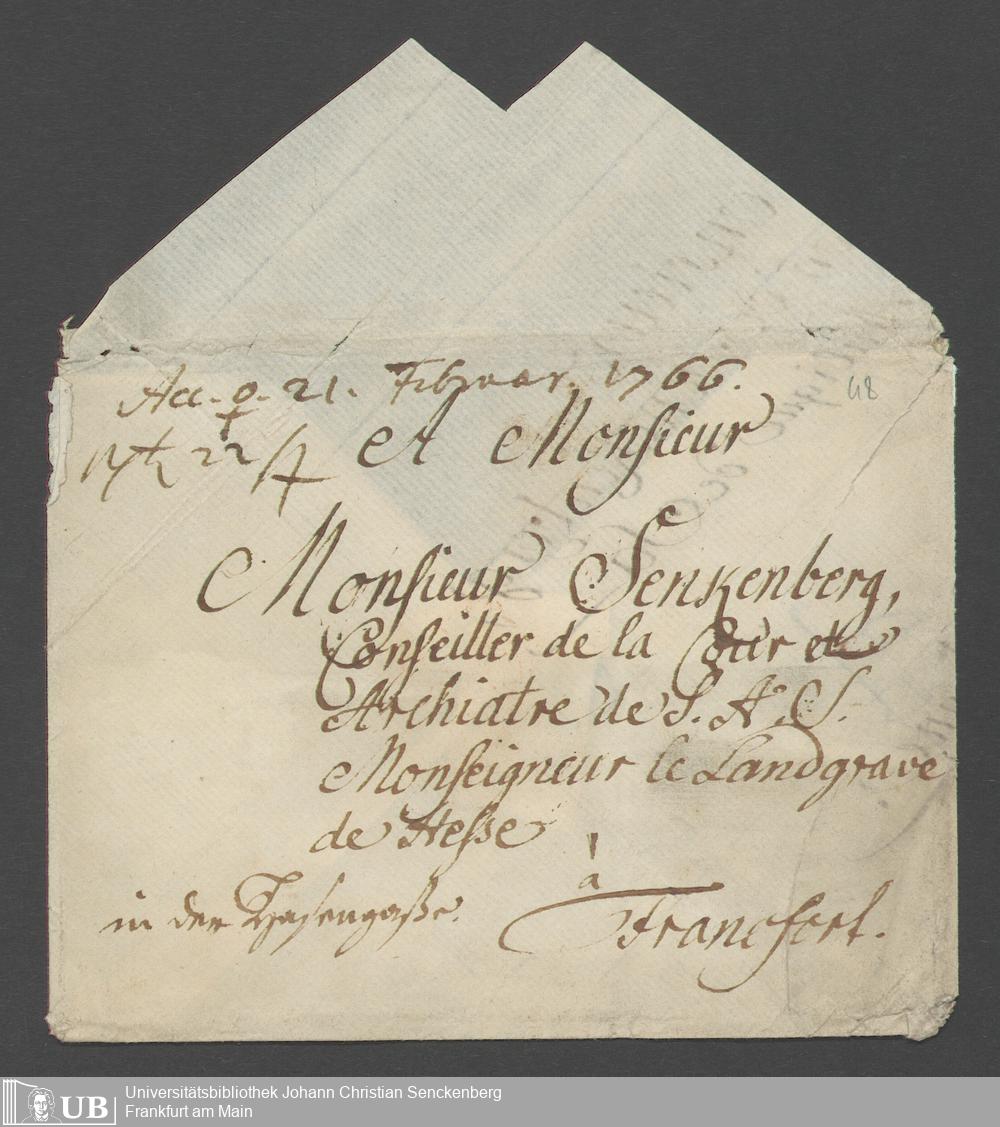 Acc. ♀. 21. Februar. 1766.
48
22
A Monsieur
Monsieur Senkenberg,
Conseiller de la Cour et
Archiatre de S. A. S.
Monseigneur le Landgrave
de Hesse
à
in der Hasengaße.
Francfort.
UB
Universitätsbibliothek Johann Christian Senckenberg
Frankfurt am Main